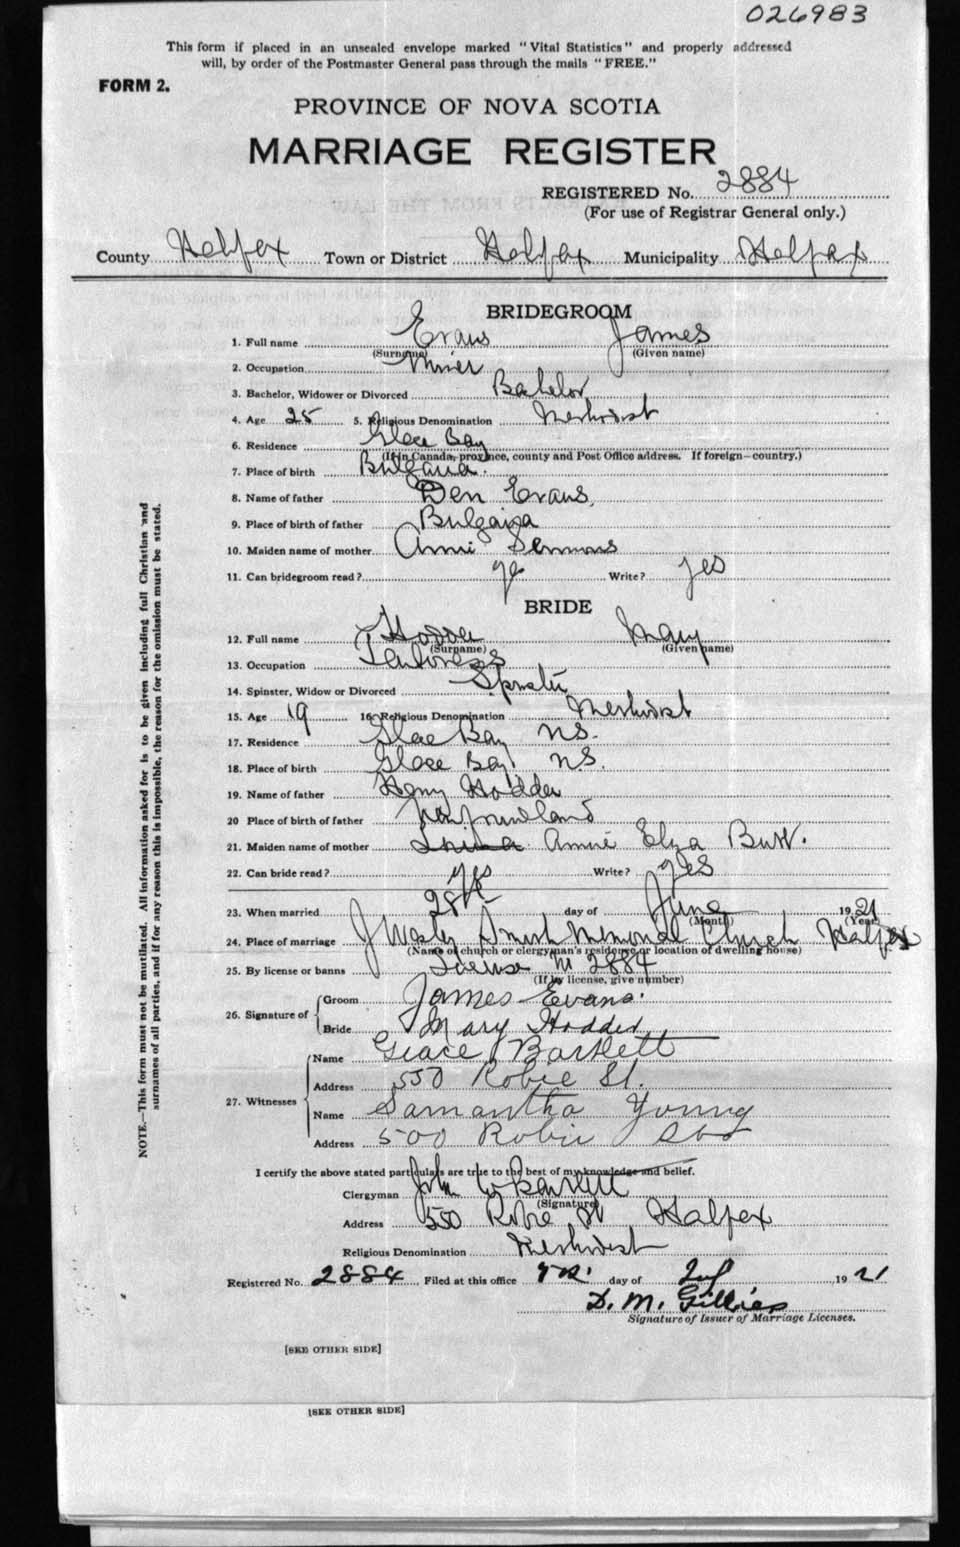 026983
This form if placed in an unsealed envelope marked "Vital Statistics" and properly addressed
will, by order of the Postmaster General pass through the mails "FREE."
FORM 2.
PROVINCE OF NOVA SCOTIA
MARRIAGE REGISTER
REGISTERED No. 2884
(For use of Registrar General only.)
County Halifax Town or District Halifax Municipality Halifax
BRIDEGROOM
1. Full name Evans James
(Surname) (Given name)
2. Occupation Miner
3. Bachelor, Widower or Divorced Bachelor
4. Age 25 5. Religious Denomination Methodist
6. Residence Glace Bay
(If in Canada, province, county and Post Office address. If foreign—country.)
7. Place of birth Bulgaria.
8. Name of father Den Evans,
9. Place of birth of father Bulgaria
10. Maiden name of mother Annie
11. Can bridegroom read? ye Write? yes
BRIDE
12. Full name Hodder Mary
(Surname) (Given name)
13. Occupation
14. Spinster, Widow or Divorced Spinster
15. Age 19 16 Religious Denomination Methodist
17. Residence Glace Bay N.S.
18. Place of birth Glace Bay N.S.
19. Name of father Henry Hodder
20 Place of birth of father Newfoundland
21. Maiden name of mother Annie Eliza Butt.
22. Can bride read? yes Write? yes
23. When married 28th day of June 1921
(Month) (Year)
24. Place of marriage J Wesley Smith Memorial Church Halifax
(Name of church or clergyman's residence or location of dwelling house)
25. By license or banns License No 2884
(If by license, give number)
26. Signature of
Groom James Evans.
Bride Mary Hodder
27. Witnesses
Name Grace Bartlett
Address 550 Robie St.
Name Samantha Young
Address 500 Robie
I certify the above stated particulars are true to the best of my knowledge and belief.
Clergyman John W Bartlett
(Signature)
Address 550 Robie St Halifax
Religious Denomination Methodist
Registered No. 2884 Filed at this office day of July 1921
D. M. Gillies
Signature of Issuer of Marriage Licenses.
[SEE OTHER SIDE]
[SEE OTHER SIDE]
NOTE.—This form must not be mutilated. All information asked for is to be given including full Christian and
surnames of all parties, and if for any reason this is impossible, the reason for the omission must be stated.